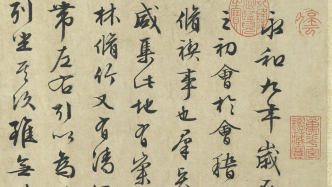 永和九年歲
之初會於會稽
脩禊事也羣賢
咸集此地有崇
林脩竹又有清
帶左右引以為
列坐其次雖無